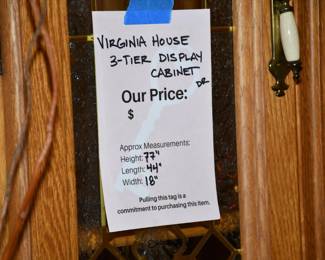 VIRGINIA HOUSE
3-TIER DISPLAY
CABINET
DR
Our Price:
$
Approx Measurements:
Height: 77"
Length: 44"
Width: 18"
Pulling this tag is a
commitment to purchasing this item.